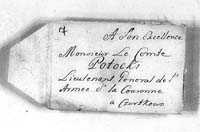 A Son Excellence
Monsieur Le Comte
Potocki
Lieutenant General de l'
Armee d la Couronne
a Czortkow